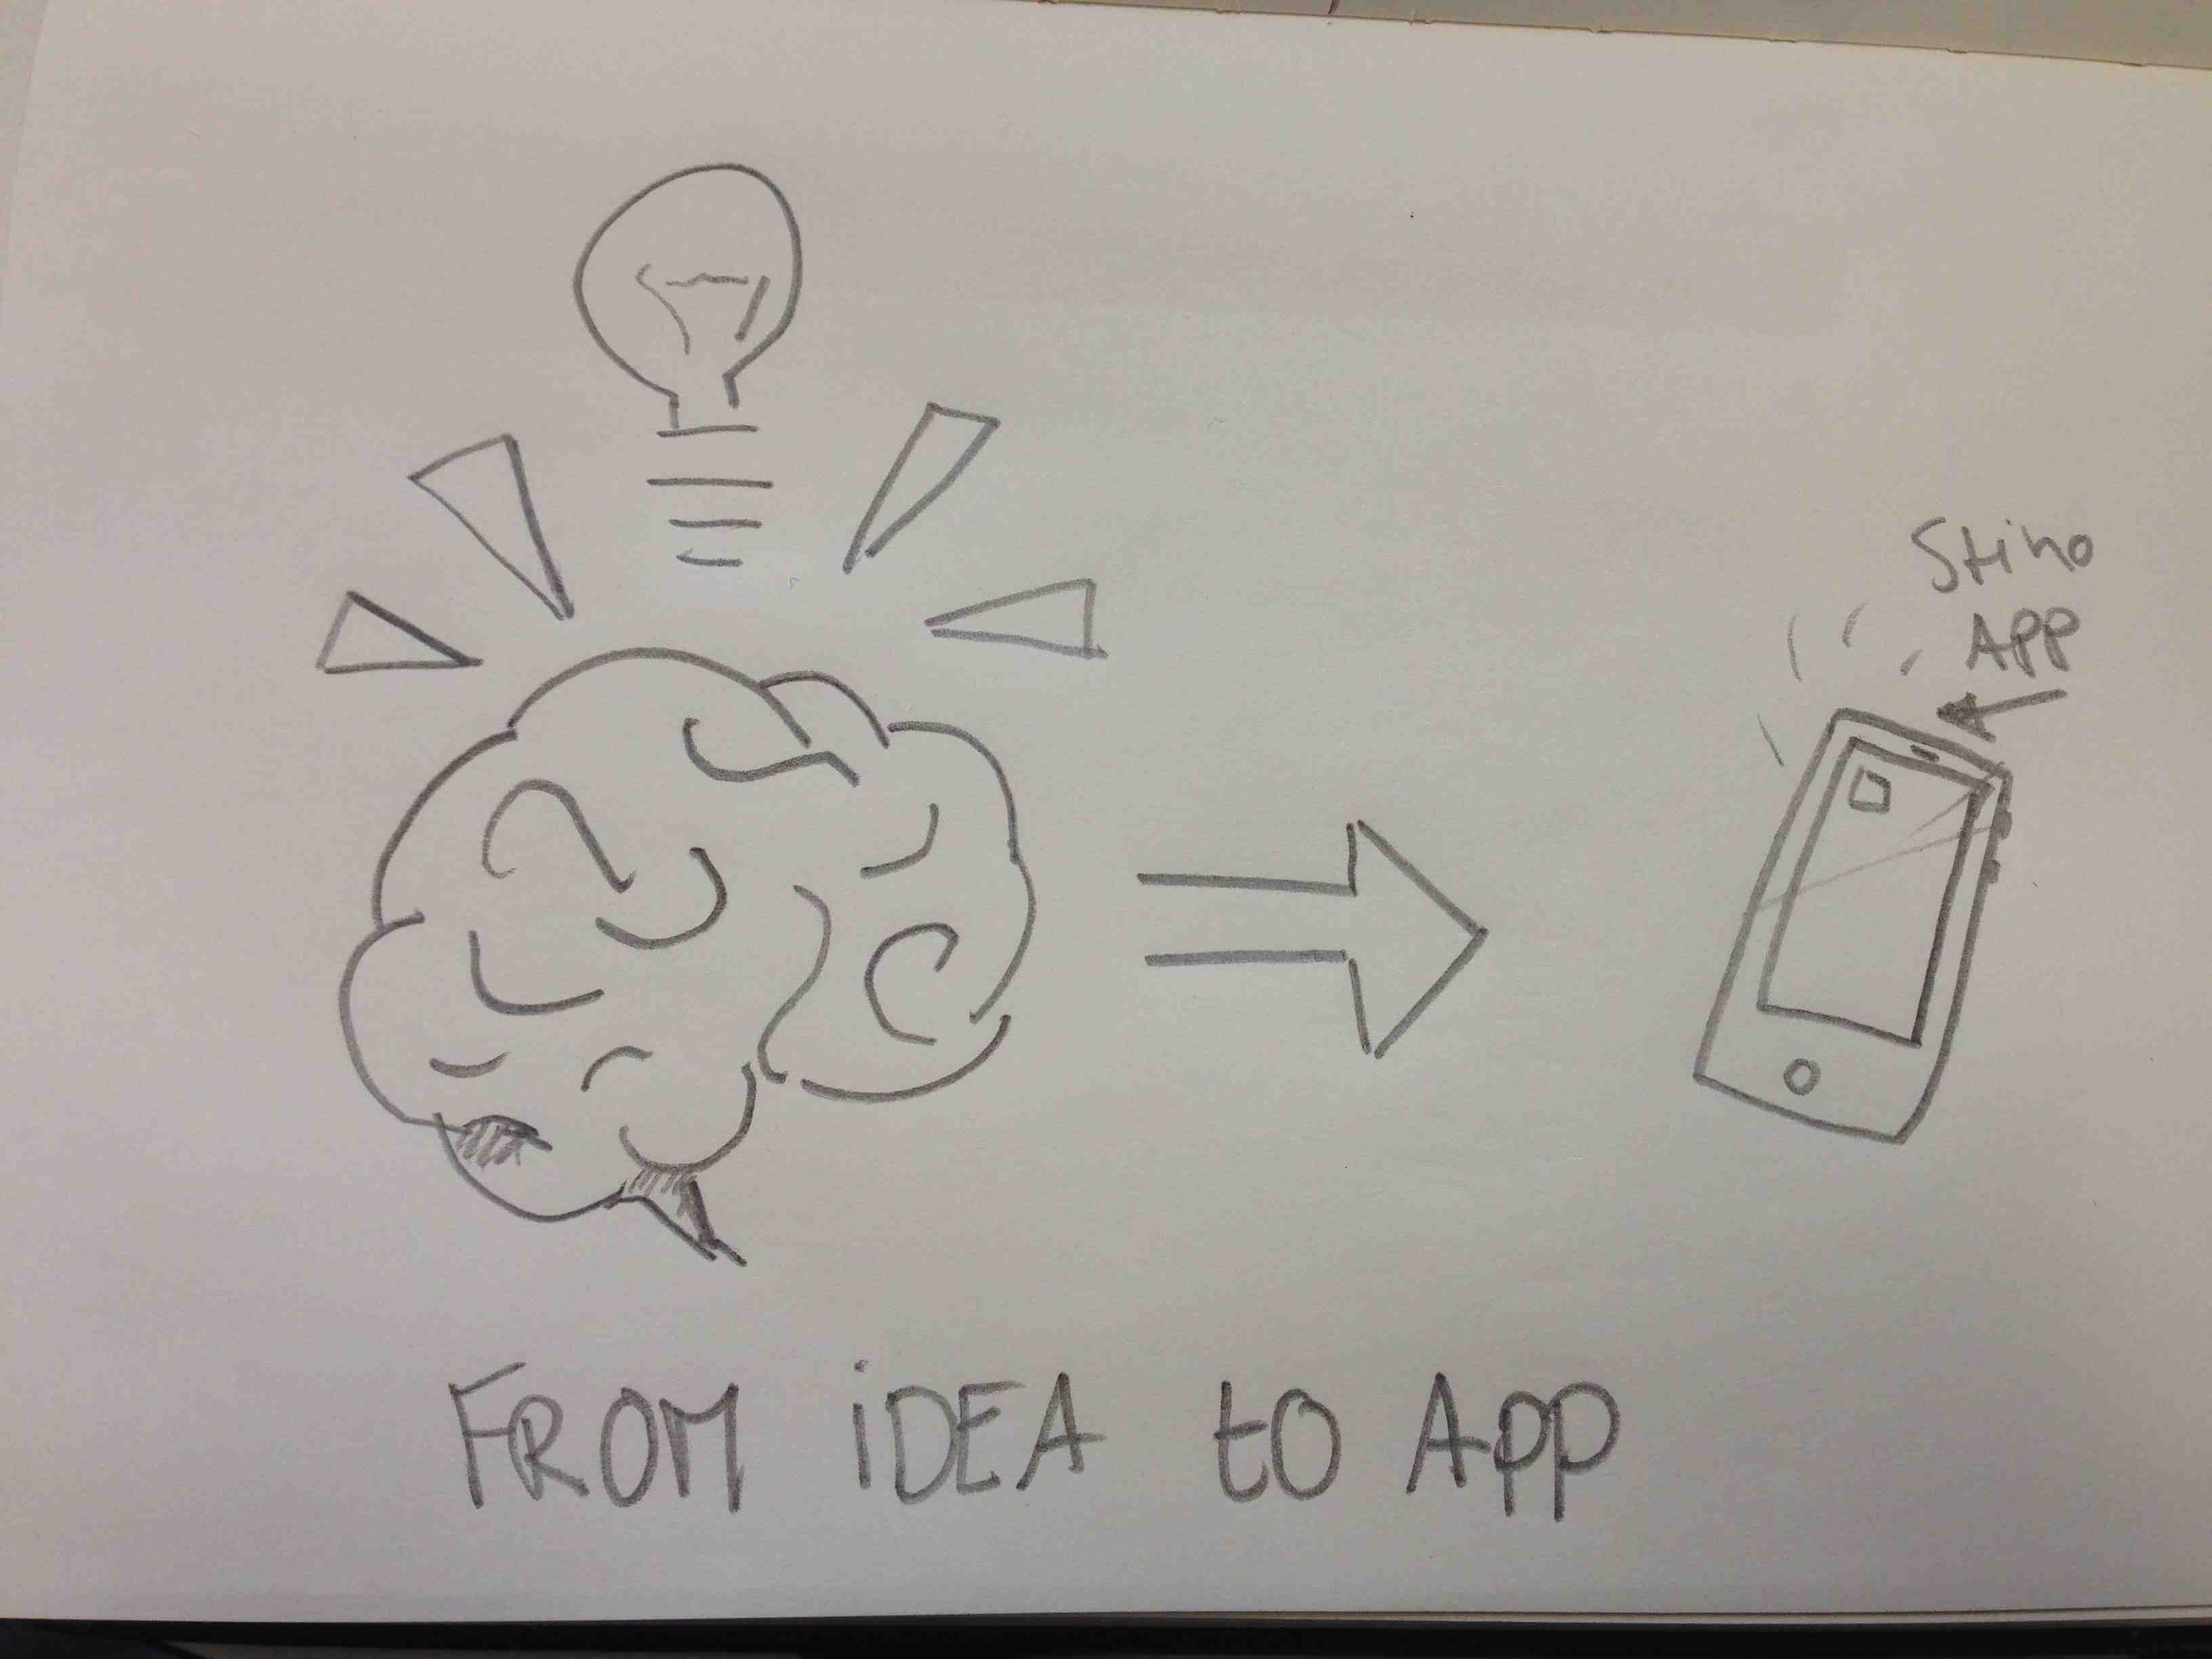 Stino
App
FROM iDEA to APP